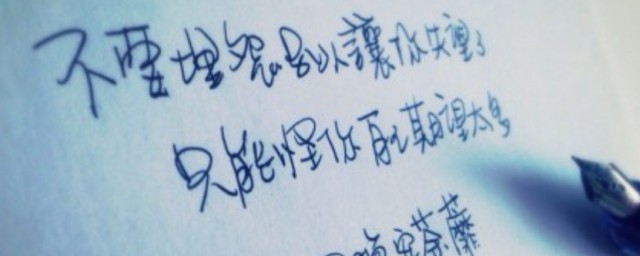 不要埋怨别人讓你失望了
只能怪你自己期望太多
荼蘼